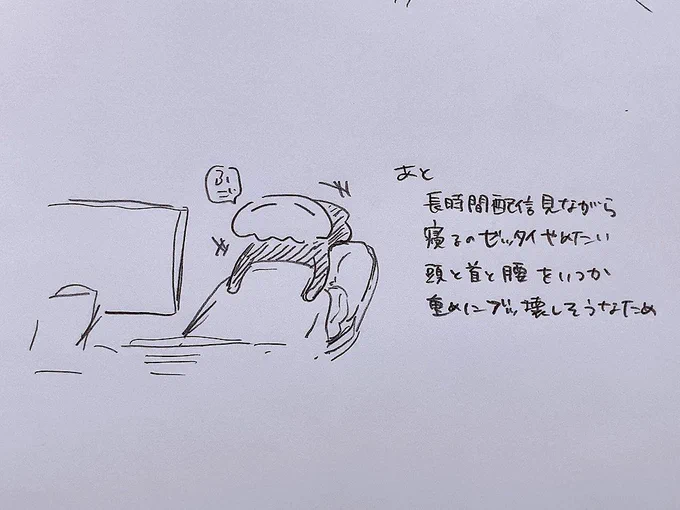 あと
長時間配信見ながら
寝るのゼッタイやめたい
頭と首と腰をいつか
重めにブッ壊しそうなため